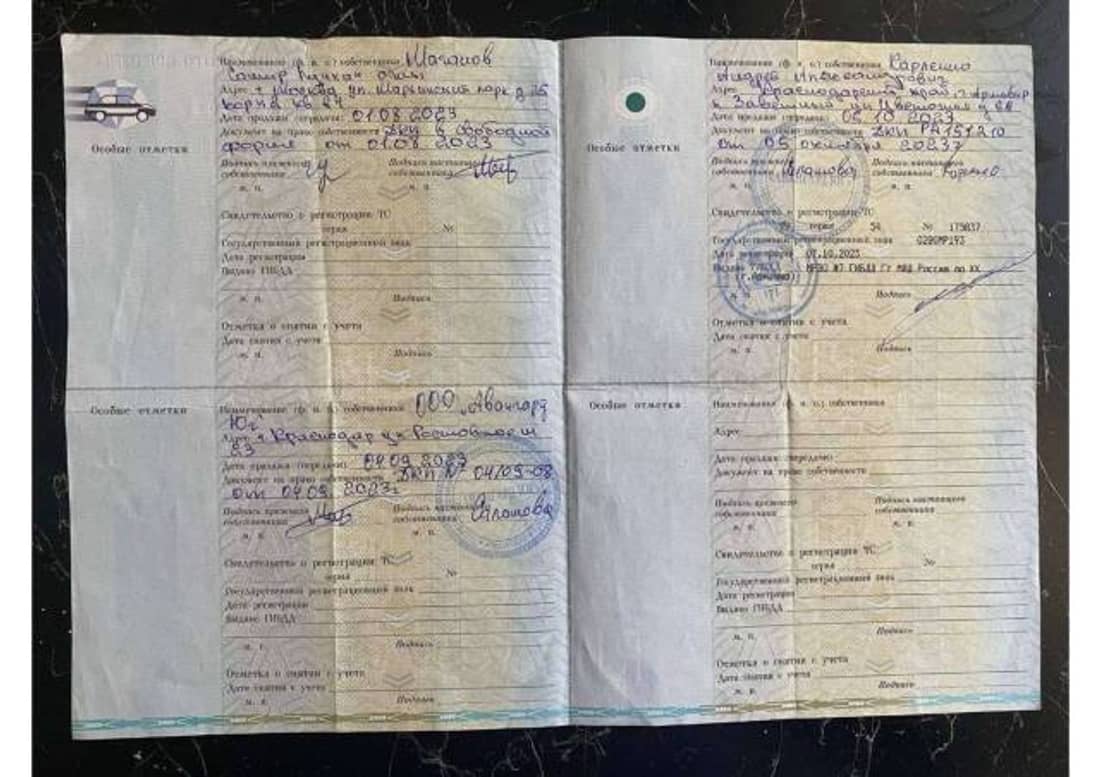 Особые отметки
Наименование (ф. и. о.) собственника Маганов
Самир
Адрес г. Москва ул. Марьинский парк д 25
корп 2 кв 84
Дата продажи (передачи) 01.08.2023
Документ на право собственности ДКП в свободной
форме от 01.08.2023
Подпись прежнего собственника
Подпись настоящего собственника
м. п.
м. п.
Свидетельство о регистрации ТС
серия №
Государственный регистрационный знак
Дата регистрации
Выдано ГИБДД
м. п. Подпись
Отметка о снятии с учета
Дата снятия с учета
м. п. Подпись
Особые отметки
Наименование (ф. и. о.) собственника ООО "Авангард
Юг"
Адрес г. Краснодар ул Ростовское ш
23
Дата продажи (передачи) 04.09.2023
Документ на право собственности ДКП № 04/09-08
от 04.09.2023г
Подпись прежнего собственника
Подпись настоящего собственника
м. п.
м. п.
Свидетельство о регистрации ТС
серия №
Государственный регистрационный знак
Дата регистрации
Выдано ГИБДД
м. п. Подпись
Отметка о снятии с учета
Дата снятия с учета
м. п. Подпись
Особые отметки
Наименование (ф. и. о.) собственника
Андрей Александрович
Адрес Краснодарский край, г. Армавир
п Заветный ул Цветочная д
Дата продажи (передачи) 05.10.2023
Документ на право собственности ДКП РА151210
от 05 октября 2023г
Подпись прежнего собственника
Подпись настоящего собственника
м. п.
м. п.
Свидетельство о регистрации ТС
серия 54 № 175837
Государственный регистрационный знак 029КМР193
Дата регистрации 07.10.2023
Выдано ГИБДД МРЭО №7 ГИБДД ГУ МВД России по КК
(г. Армавир)
м. п. Подпись
Отметка о снятии с учета
Дата снятия с учета
м. п. Подпись
Особые отметки
Наименование (ф. и. о.) собственника
Адрес
Дата продажи (передачи)
Документ на право собственности
Подпись прежнего собственника
Подпись настоящего собственника
м. п.
м. п.
Свидетельство о регистрации ТС
серия №
Государственный регистрационный знак
Дата регистрации
Выдано ГИБДД
м. п. Подпись
Отметка о снятии с учета
Дата снятия с учета
м. п. Подпись